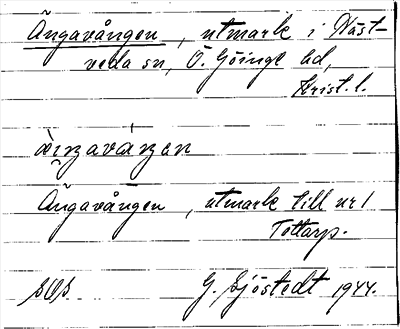 Ängavången, utmark i Näst-
veda sn, Ö. Göinge hd,
Krist. l.
Ängavången, utmark till nr 1
Tottarp.
G. Sjöstedt 1944.